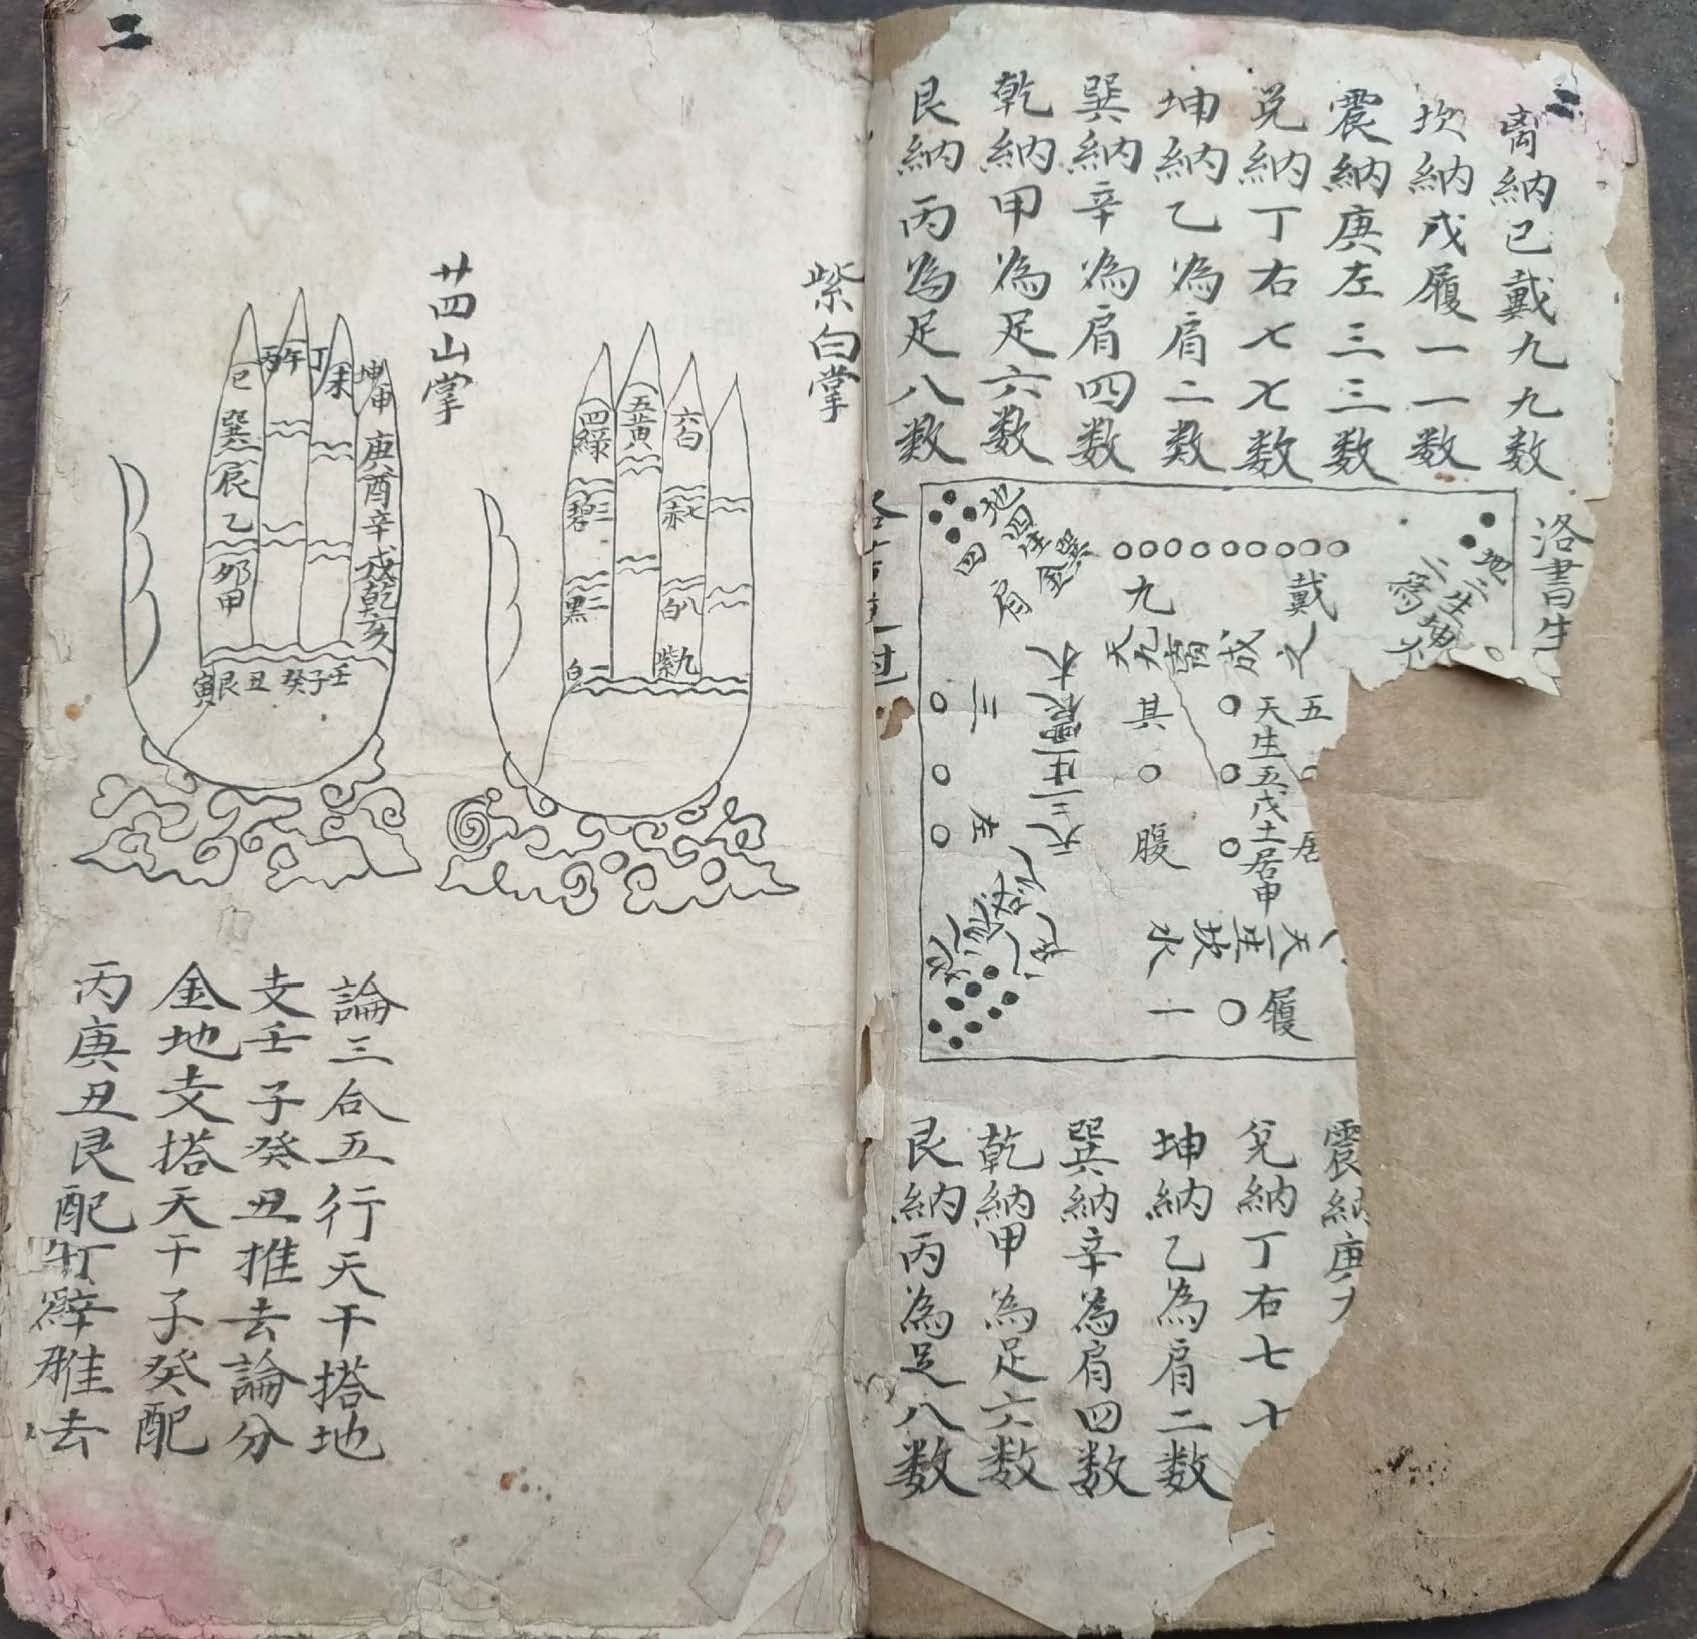 二
离納己戴九九数
坎納戊履一一数
震納庚左三三数
兑納丁右七七数
坤納乙為肩二数
巽納辛為肩四数
乾納甲為足六数
艮納丙為足八数
洛書生
地二生
二
戴
九
天九离成之
地四生巽
四
肩
五
居
其
腹
天生五戊土居中
三
左
天三生震木
天一生坎水
履
一
震納庚
兑納丁右七七
坤納乙為肩二数
巽納辛為肩四数
乾納甲為足六数
艮納丙為足八数
二
紫白掌
四綠
五黄
六白
三碧
七赤
二黑
八白
一白
九紫
廿四山掌
巳
丙午
丁未
坤申
巽辰乙卯甲
庚酉辛戌乾亥
寅艮丑癸子壬
論三合五行天干搭地
支壬子癸丑推去論分
金地支搭天干子癸配
丙庚丑艮配丁辛推去